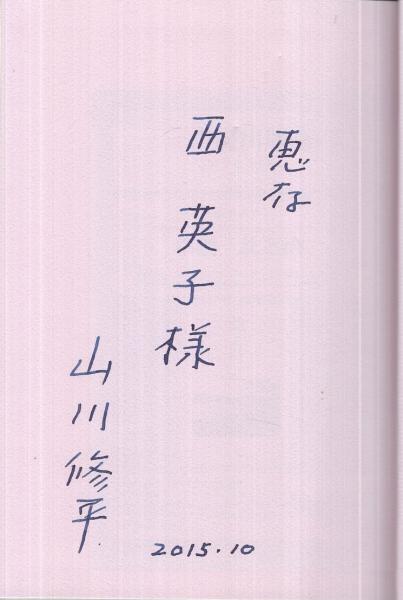 恵存
西英子様
山川修平
2015.10